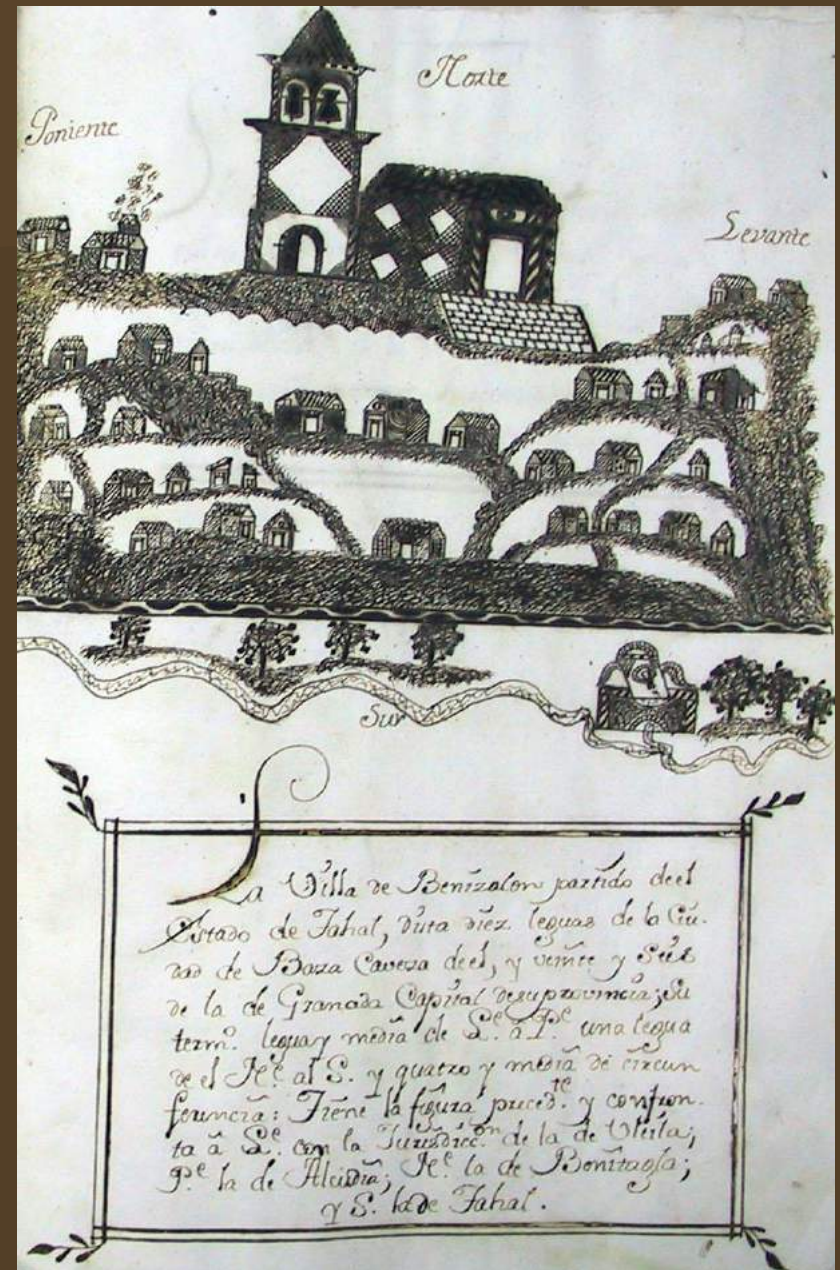 Norte
Poniente
Levante
Sur
La Villa de Benizalon partido deel
Estado de Tahal, dista diez leguas de la Ciu-
dad de Baza Caveza deel, y veinte y Seis
de la de Granada Capital desuprovincia; Su
term.º legua y media de L.e a P.e una legua
de el N.e al S. y quatro y media de circun
ferencia: Tiene la figura preced.te y confron-
ta a L.e con la Jurisdicc.on de la de Uleila;
P.e la de Alcudia; N.e la de Benitagla;
y S. la de Tahal.